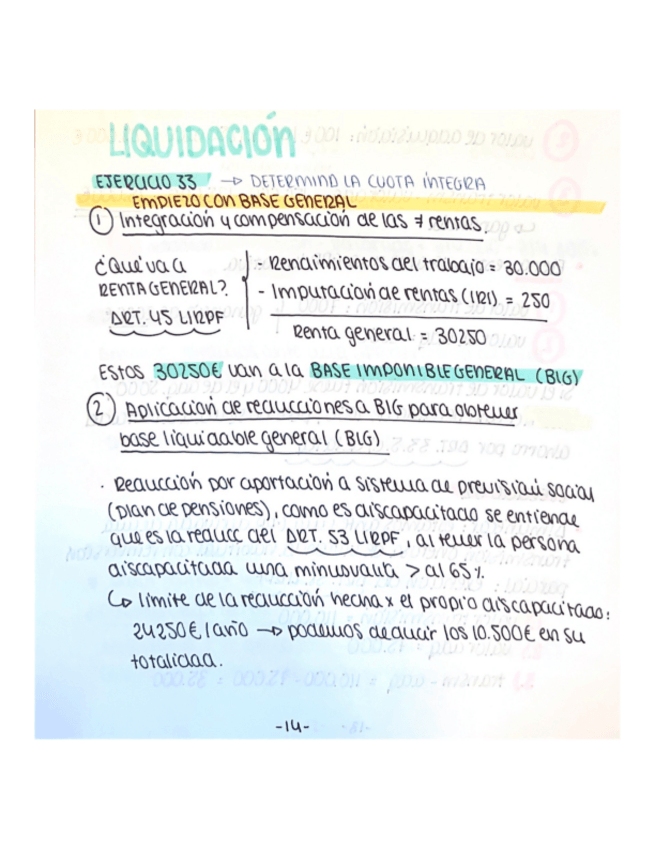 LIQUIDACIÓN
EJERCICIO 33 → DETERMINA LA CUOTA ÍNTEGRA
EMPIEZO CON BASE GENERAL
① Integración y compensación de las ≠ rentas.
¿Qué va a - Rendimientos del trabajo = 30.000
RENTA GENERAL? - Imputación de rentas (IRI) = 250
ART. 45 LIRPF Renta general = 30250
Estos 30250€ van a la BASE IMPONIBLE GENERAL (BIG)
② Aplicación de reducciones a BIG para obtener
base liquidable general (BLG)
· Reducción por aportación a sistema de previsión social
(plan de pensiones), como es discapacitado se entiende
que es la reducc del ART. 53 LIRPF, al tener la persona
discapacitada una minusvalía > al 65%
↳ límite de la reducción hecha x el propio discapacitado:
24250€/año → podemos deducir los 10.500€ en su
totalidad.
-14-